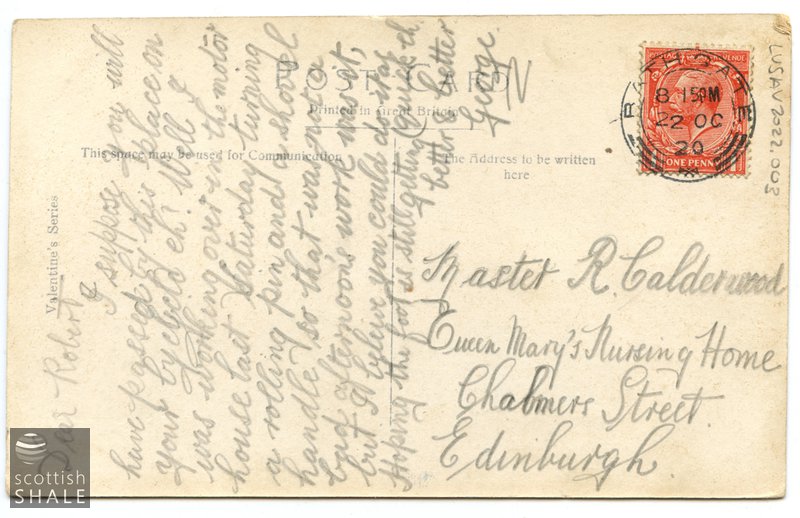 POST CARD
Printed in Great Britain
This space may be used for Communication
The Address to be written
here
Valentine's Series
N
POSTAGE REVENUE
ONE PENNY
BATHGATE
8 15PM
22 OC
29
LUSAV2022.003
Dear Robert
I suppose you will
have passed by this place on
your bycicle eh? Well I
was working over in the motor
house last Saturday turning
a rolling pin and a shovel
handle, so that was not a
bad afternoon's work was it,
but I beleive you could do it eh
Hoping the foot is still getting
better & better
George.
Master R. Calderwood
Queen Mary's Nursing Home
Chalmers Street.
Edinburgh
scottish
SHALE